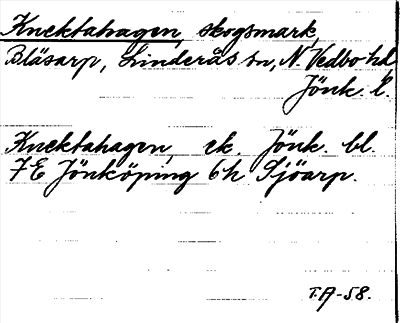 Knektahagen, skogsmark,
Bläsarp, Linderås sn, N. Vedbo hd
Jönk. l.
Knektahagen, ek. Jönk. bl.
7E Jönköping 6h Sjöarp.
T.A-58.